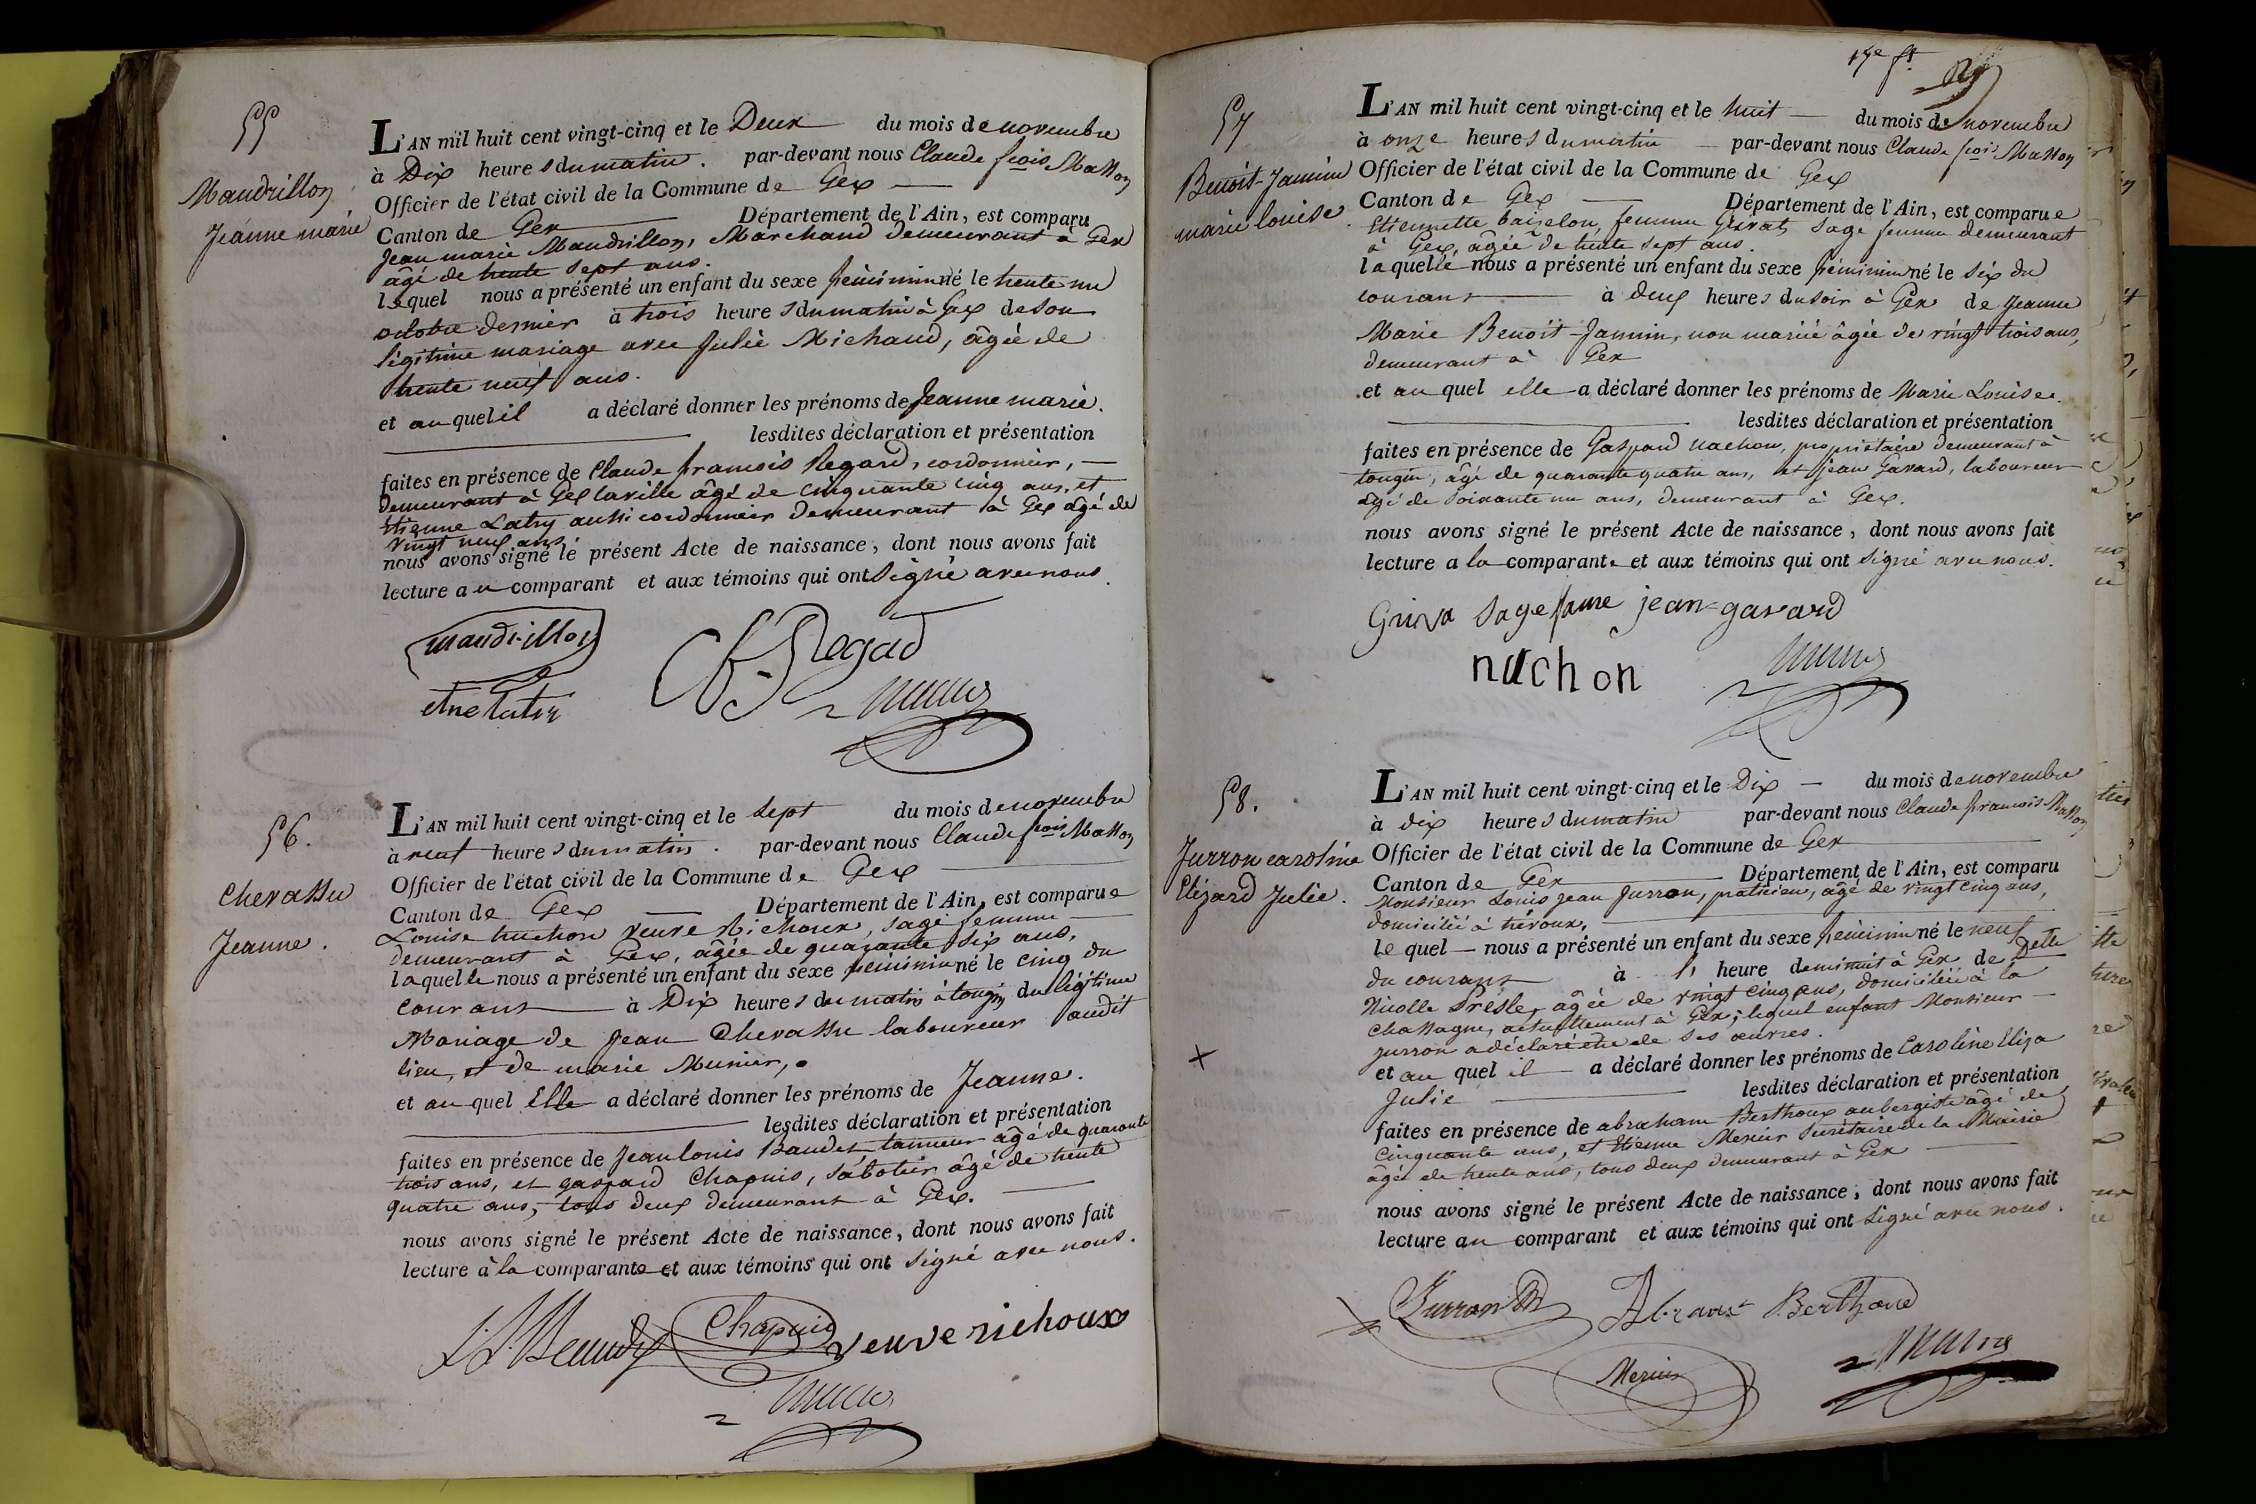 55
Maudrillon
Jeanne marie
L'AN mil huit cent vingt-cinq et le Deux du mois de novembre
à Dix heures du matin. par-devant nous Claude fçois Masson
Officier de l'état civil de la Commune de Gex
Canton de Gex Département de l'Ain, est comparu
Jean marie Maudrillon, Marchand demeurant à Gex
âgé de trente sept ans.
lequel nous a présenté un enfant du sexe féminin né le trente un
octobre dernier à trois heures du matin à Gex de son
légitime mariage avec Julie Michaud, âgée de
trente neuf ans.
et au quel il a déclaré donner les prénoms de Jeanne marie.
lesdites déclaration et présentation
faites en présence de Claude francois Regard, cordonnier,
demeurant à Gex la ville âgé de cinquante cinq ans, et
Etienne Latry aussi cordonnier demeurant à Gex âgé de
vingt neuf ans.
nous avons signé le présent Acte de naissance, dont nous avons fait
lecture au comparant et aux témoins qui ont signé avec nous.
maudrillon
Regad
etne latri
56.
Chevassu
Jeanne.
L'AN mil huit cent vingt-cinq et le sept du mois de novembre
à neuf heures du matin. par-devant nous Claude fçois Masson
Officier de l'état civil de la Commune de Gex
Canton de Gex Département de l'Ain, est comparue
Louise truchon veuve Richoux, sage femme
demeurant à Gex, âgée de quarante six ans.
laquelle nous a présenté un enfant du sexe féminin né le cinq du
courant à Dix heures du matin à tougin du légitime
Mariage de Jean Chevassu laboureur audit
lieu, et de marie Munier,
et au quel Elle a déclaré donner les prénoms de Jeanne.
lesdites déclaration et présentation
faites en présence de Jean louis Baudet tanneur âgé de quarante
trois ans, et gaspard Chapuis, sabotier âgé de trente
quatre ans, tous deux demeurant à Gex.
nous avons signé le présent Acte de naissance, dont nous avons fait
lecture à la comparante et aux témoins qui ont signé avec nous.
Chapuis
veuve richoux
17e ft.
57
Benoit-Jannin
marie louise.
L'AN mil huit cent vingt-cinq et le huit du mois de novembre
à onze heures du matin par-devant nous Claude fçois Masson
Officier de l'état civil de la Commune de Gex
Canton de Gex Département de l'Ain, est comparue
Etiennette femme sage femme demeurant
à Gex, âgée de trente sept ans.
laquelle nous a présenté un enfant du sexe féminin né le six du
courant à deux heures du soir à Gex de Jeanne
Marie Benoit-Jannin, non mariée âgée de vingt trois ans,
demeurant à Gex
et au quel elle a déclaré donner les prénoms de Marie Louise.
lesdites déclaration et présentation
faites en présence de Gaspard nachon, propriétaire demeurant à
tougin, âgé de quarante quatre ans, et jean Gavard, laboureur
âgé de soixante un ans, demeurant à Gex.
nous avons signé le présent Acte de naissance, dont nous avons fait
lecture a la comparante et aux témoins qui ont signé avec nous.
sage fame jean gavard
nachon
58.
Jurron caroline
Elizard Julie.
L'AN mil huit cent vingt-cinq et le Dix du mois de novembre
à dix heures du matin par-devant nous Claude francois Masson
Officier de l'état civil de la Commune de Gex
Canton de Gex Département de l'Ain, est comparu
Monsieur Louis jean Jurron, praticien, âgé de vingt cinq ans,
domicilié à trévoux,
le quel nous a présenté un enfant du sexe féminin né le neuf
du courant à l' heure de minuit à Gex de Delle
Nicolle Presle, âgée de vingt cinq ans, domiciliée à la
Chassagne, actuellement à Gex; lequel enfant Monsieur
jurron a déclaré être de ses œuvres.
et au quel il a déclaré donner les prénoms de Caroline Eliza
Julie
lesdites déclaration et présentation
faites en présence de abraham Berthoux aubergiste âgé de
Cinquante ans, et Etienne Mercier Secrétaire de la Mairie
âgé de trente ans, tous deux demeurant à Gex
nous avons signé le présent Acte de naissance, dont nous avons fait
lecture au comparant et aux témoins qui ont signé avec nous.
Jurron
Berthoud
Mercier